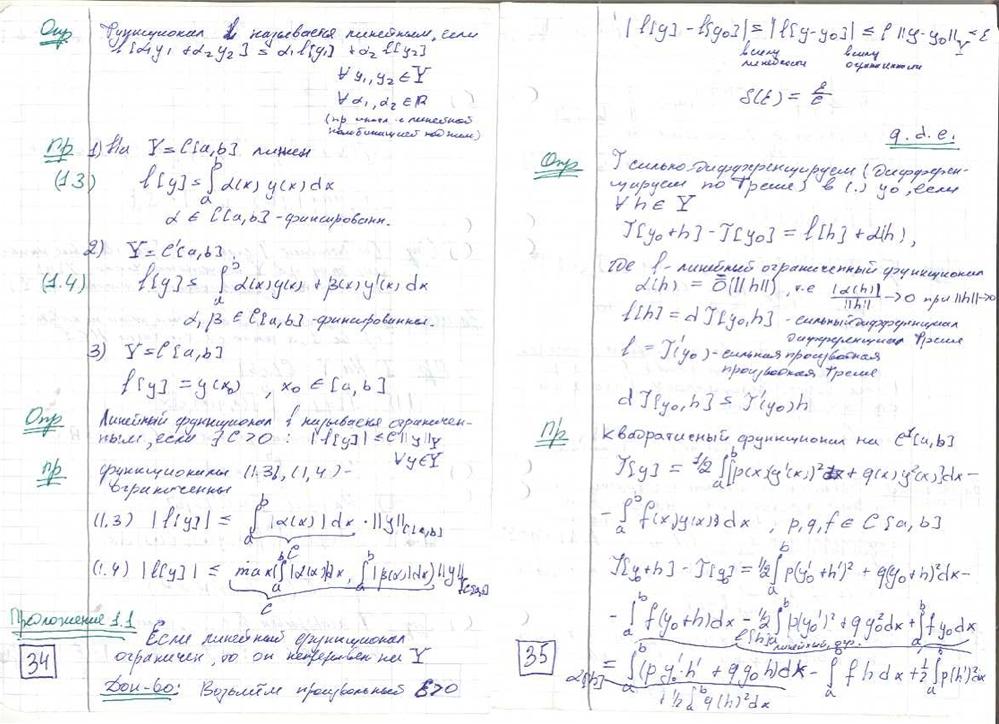 Опр Функционал l называется линейным, если
l[α₁y₁ + α₂y₂] = α₁l[y₁] + α₂l[y₂]
∀ y₁, y₂ ∈ Y
∀ α₁, α₂ ∈ R
комбинацией
Пр 1) На Y = C[a,b] линен
(1.3) l[y] = ∫ₐᵇ α(x) y(x) dx
α ∈ C[a,b] - фиксированн.
2) Y = C'[a,b]
(1.4) l[y] = ∫ₐᵇ α(x)y(x) + β(x)y'(x) dx
α, β ∈ C[a,b] - фиксированны.
3) Y = C[a,b]
l[y] = y(x₀), x₀ ∈ [a,b]
Опр Линейный функционал l называется ограничен-
ным, если ∃ C>0 : |l[y]| ≤ C||y||_Y
∀y∈Y
пр функционалы (1.3), (1.4) -
ограниченны
(1.3) |l[y]| ≤ ∫ₐᵇ |α(x)| dx · ||y||_C[a,b]
C
(1.4) |l[y]| ≤ max(∫ₐᵇ |α(x)|dx, ∫ₐᵇ |β(x)|dx) ||y||_C'[a,b]
C
Предложение 1.1
Если линейный функционал
ограничен, то он непрерывен на Y
34
Док-во: Возьмём произвольный ε>0
|l[y] - l[y₀]| = |l[y-y₀]| ≤ C ||y-y₀||_Y < ε
в силу линейности в силу ограниченности
δ(ε) = ε/C
q.d.e.
Опр J сильно дифференцируем (дифферен-
цируем по Фреше) в (.) y₀, если
∀ h ∈ Y
J[y₀+h] - J[y₀] = l[h] + α(h),
где l - линейный ограниченный функционал
α(h) = ō(||h||), т.е |α(h)|/||h|| → 0 при ||h||→0
l[h] = dJ[y₀,h] - сильный дифференциал
дифференциал Фреше
l = J'(y₀) - сильная производная
производная Фреше
dJ[y₀,h] = J'(y₀)h
Пр Квадратичный функционал на C¹[a,b]
J[y] = 1/2 ∫ₐᵇ [p(x)(y'(x))² + q(x)y²(x)]dx -
- ∫ₐᵇ f(x)y(x)dx, p, q, f ∈ C[a,b]
J[y₀+h] - J[y₀] = 1/2 ∫ₐᵇ p(y₀'+h')² + q(y₀+h)²dx -
- ∫ₐᵇ f(y₀+h)dx - 1/2 ∫ₐᵇ p(y₀')² + q y₀²dx + ∫ₐᵇ f y₀dx
l[h] линейный
35
= ∫ₐᵇ (p y₀'·h' + q y₀ h)dx - ∫ₐᵇ f h dx + 1/2 ∫ₐᵇ p(h')²dx
α[h] + 1/2 ∫ₐᵇ q(h)²dx